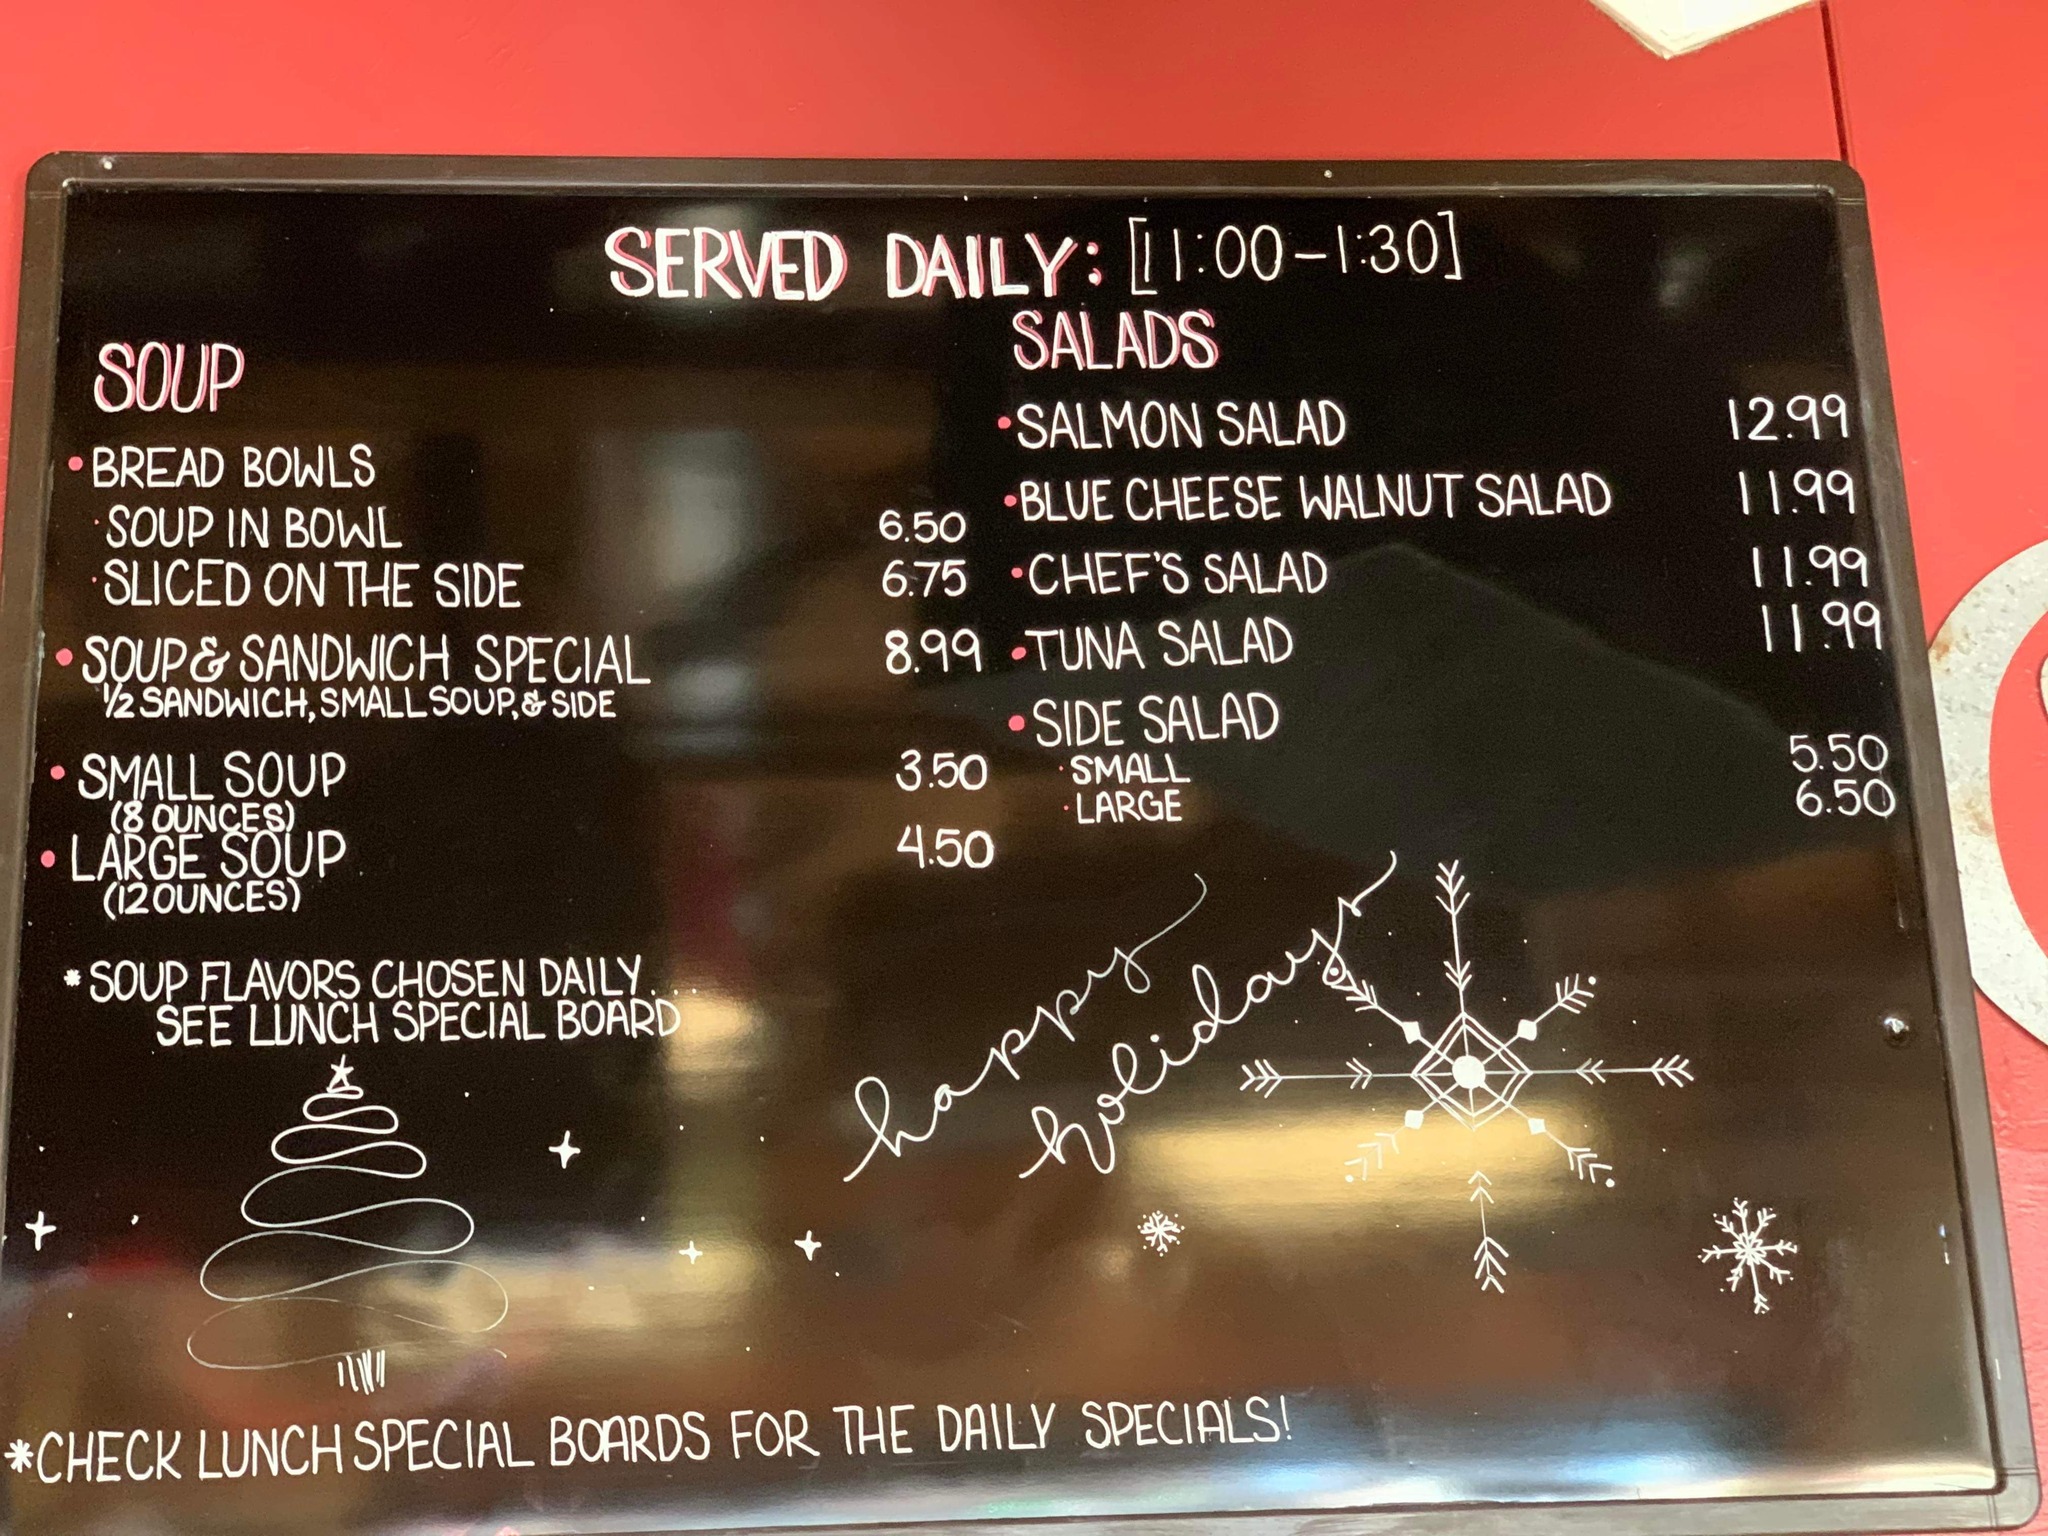 SERVED DAILY: [11:00-1:30]
SOUP
• BREAD BOWLS
· SOUP IN BOWL 6.50
· SLICED ON THE SIDE 6.75
• SOUP & SANDWICH SPECIAL 8.99
1/2 SANDWICH, SMALL SOUP, & SIDE
• SMALL SOUP 3.50
(8 OUNCES)
• LARGE SOUP 4.50
(12 OUNCES)
* SOUP FLAVORS CHOSEN DAILY...
SEE LUNCH SPECIAL BOARD
SALADS
• SALMON SALAD 12.99
• BLUE CHEESE WALNUT SALAD 11.99
• CHEF'S SALAD 11.99
• TUNA SALAD 11.99
• SIDE SALAD
· SMALL 5.50
· LARGE 6.50
happy
holidays
*CHECK LUNCH SPECIAL BOARDS FOR THE DAILY SPECIALS!